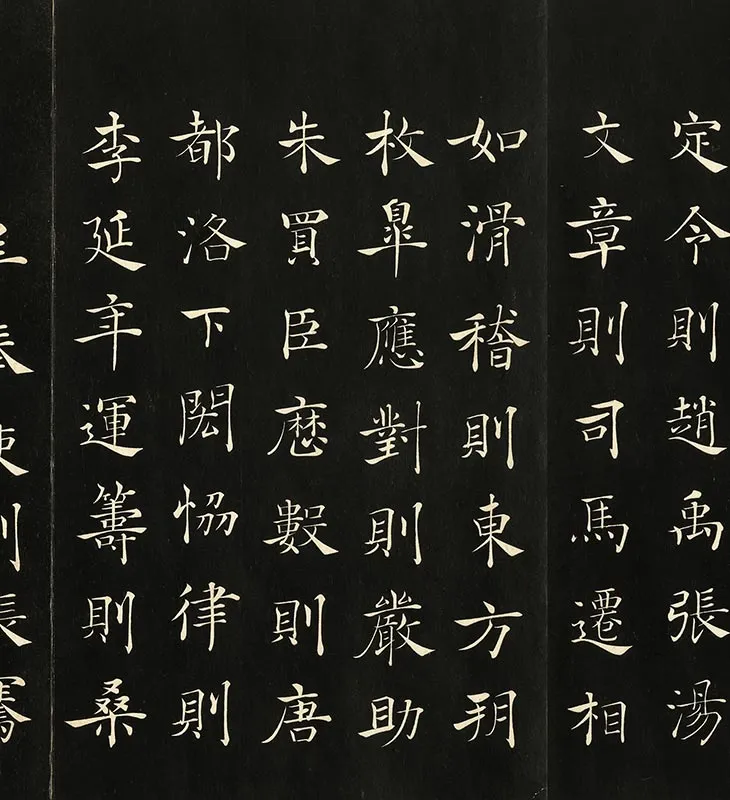 定令則趙禹張湯
文章則司馬遷相
如滑稽則東方朔
枚皐應對則嚴助
朱買臣歷數則唐
都洛下閎恊律則
李延年運籌則桑